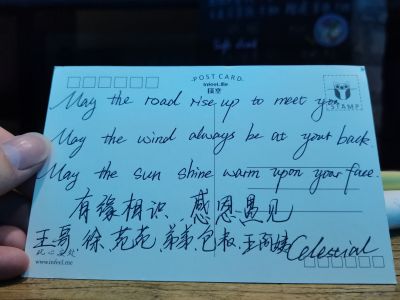 POST CARD
infeel.me
May the road rise up to meet you.
STAMP
May the wind always be at your back.
May the sun shine warm upon your face.
有缘相识、感恩遇见
王哥 徐 苑苑 弟弟 包叔 Celestial
www.infeel.me